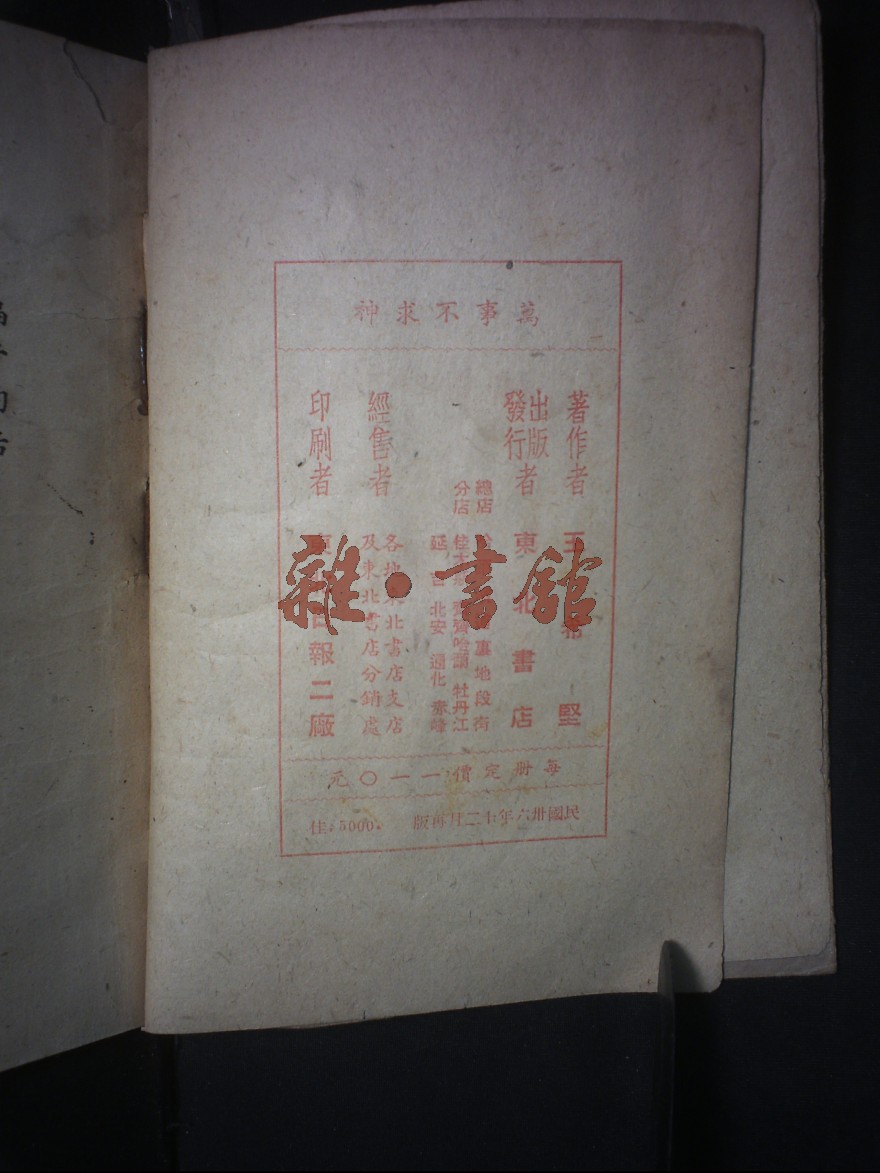 萬事不求神
著作者 王希堅
出版
發行者 東北書店
總店 裏地段街
分店 佳木斯 齊齊哈爾 牡丹江
延吉 北安 通化 赤峰
經售者 各地東北書店支店
及東北書店分銷處
印刷者 東北日報二廠
每册定價一一〇元
民國卅六年十二月再版 佳:5000.
雜·書館